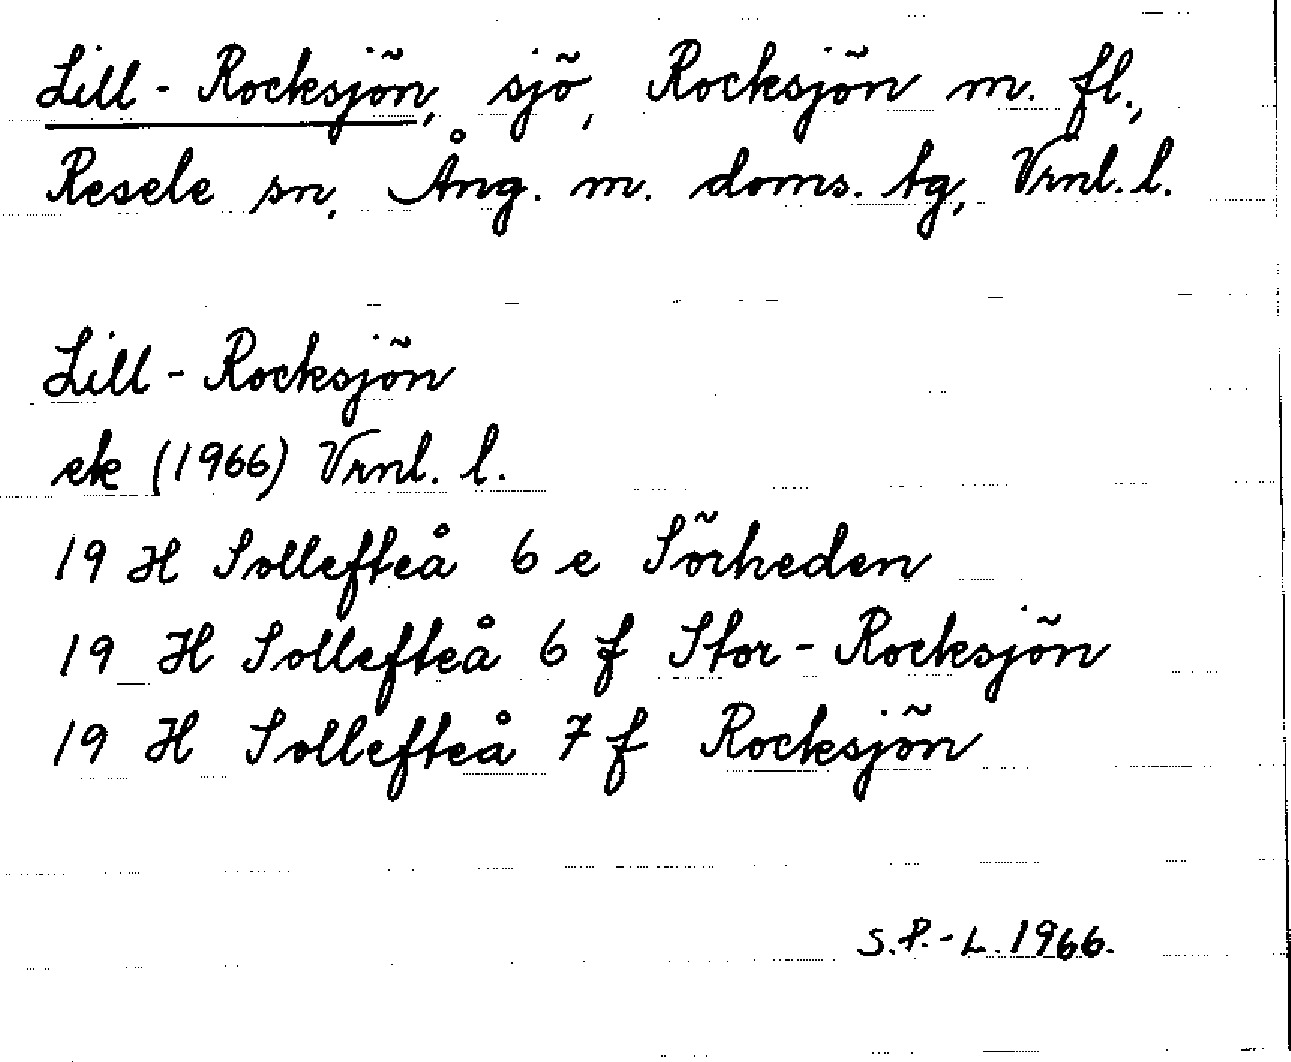 Lill-Rocksjön, sjö, Rocksjön m. fl.,
Resele sn, Ång. m. doms. tg, Vrnl. l.
Lill-Rocksjön
ek (1966) Vrnl. l.
19 H Sollefteå 6 e Sörheden
19 H Sollefteå 6 f Stor-Rocksjön
19 H Sollefteå 7 f Rocksjön
S.P.-L. 1966.